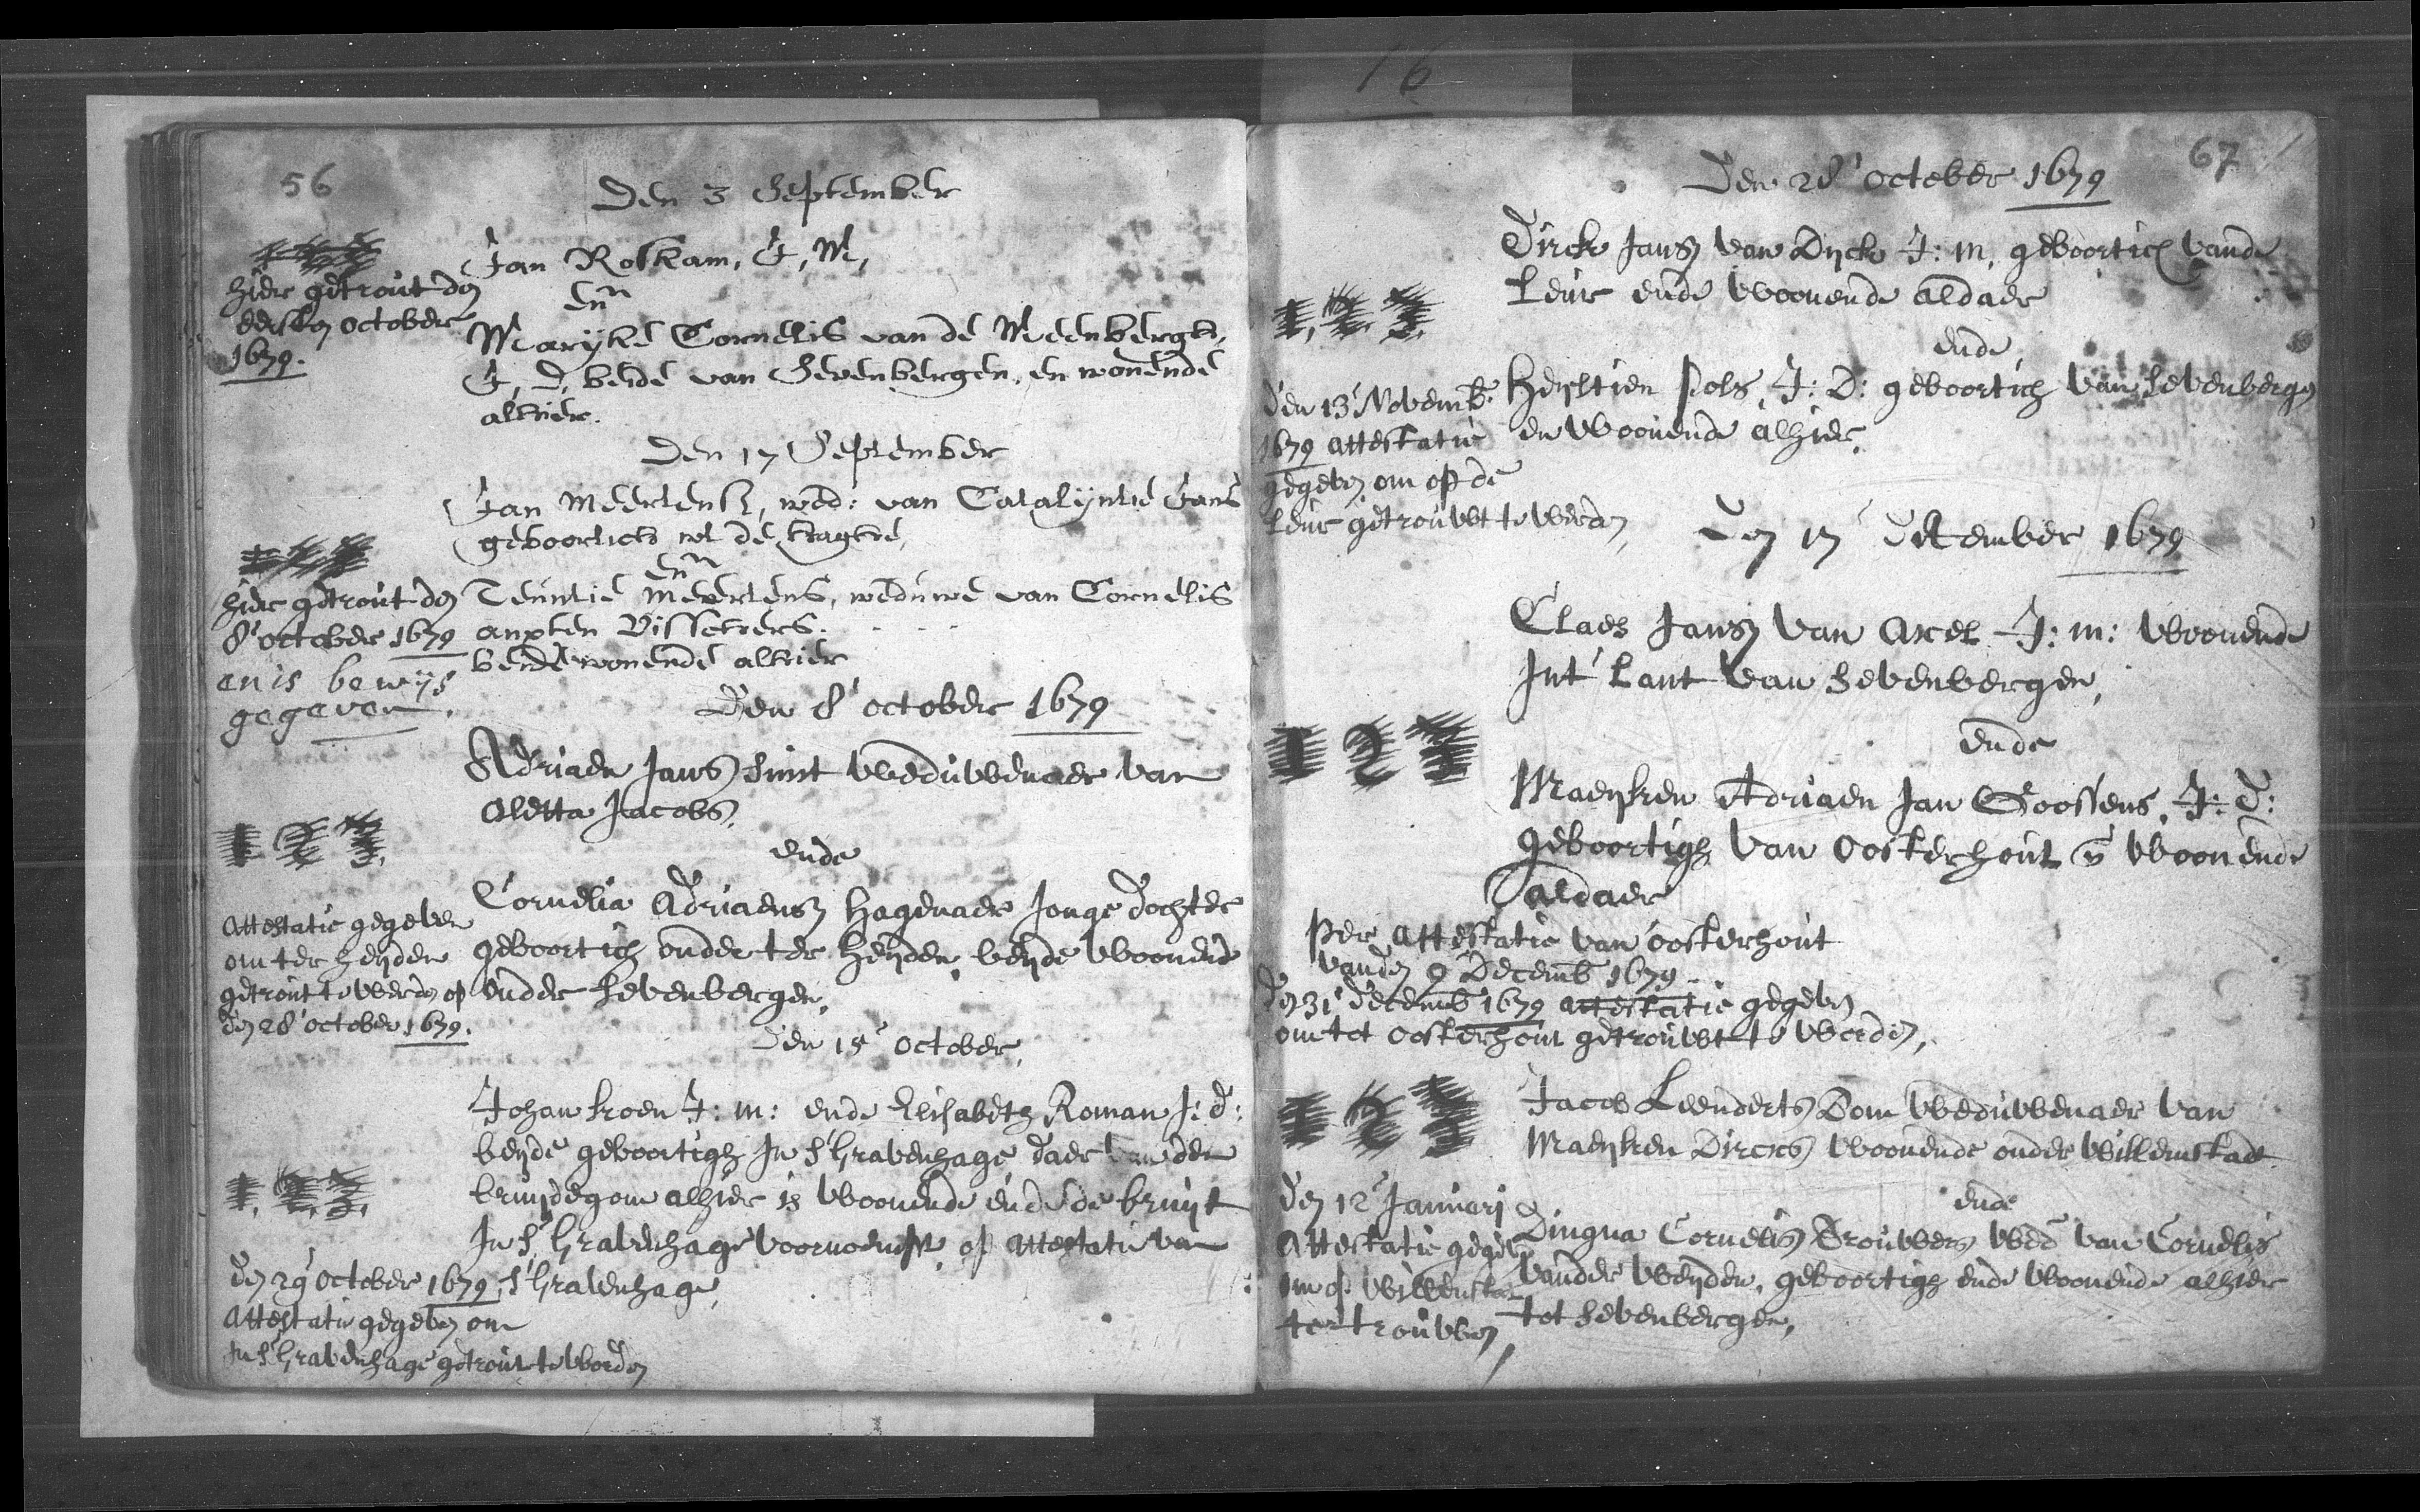 16
56
Den 3 September
Jan Roskam, J, M,
en
Marÿke Cornelis van de Meenbergh,
J, D, beide van Sevenbergen, en wonende
alhier.
1 2 3
hier getrout den
eersten october
1679.
Den 17 September
Jan Meertensz, wed: van Catalÿntie Jans
geboortich wt de haghe,
en
Teuntie Meertens, weduwe van Cornelis
Vissehers.
beide wonende alhier
1 2 3
hier getrout den
8 october 1679
en is bewijs
gegeven.
Den 8 october 1679
Adriaen Jansz Smit weduwenaer van
Aletta Jacobs,
ende
Cornelia Adriaensz Hagenaer Jonge dochter
geboortich onder ter heyden, beyde woonende
onder Sevenbergen,
1 2 3
Attestatie gegeven
om ter heyden
getrout te werden op
den 28 october 1679.
Den 15 October,
Johan kroen J: m: ende Elisabeth Roman J: d:
beyde geboortigh In s'Gravenhage daer van den
bruydegom alhier is woonende ende de bruyt
In s'Gravenhage voornoemt, op attestatie van
s'Gravenhage,
1 2 3
den 29 October 1679
Attestatie gegeven om
In s'Gravenhage getrout te worden
67
Den 28 october 1679
Dirck Jansz van Dyck J: m, geboortich vande
Leur ende woonende aldaer
ende
Heyltien Pols, J: D: geboortich van Sevenbergen
en woonende alhier,
1 2 3
Den 13 Novemb.
1679 attestatie
gegeven om op de
Leur getrouwt te werden,
Den 17 December 1679
Claes Jansz van Axel J: m: woonende
Int Lant van Sevenbergen,
ende
Maeyken Adriaen Jan Goossens, J: d:
geboortigh van Oosterhout en woonende
aldaer
1 2 3
Per attestatie van oosterhout
vanden 9 Decemb 1679
den 31 decemb 1679 attestatie gegeven
om tot Oosterhout getrouwt te werden,
Jacob Leenderts Bom weduwenaer van
Maeyken Dircks woonende onder Willemstadt
ende
Dingna Cornelis Brouwers wed van Cornelis
vander Weyden, geboortigh ende woonende alhier
tot Sevenbergen,
1 2 3
den 12 Januarij
Attestatie gegeven
om op Willemstad
te trouwen,